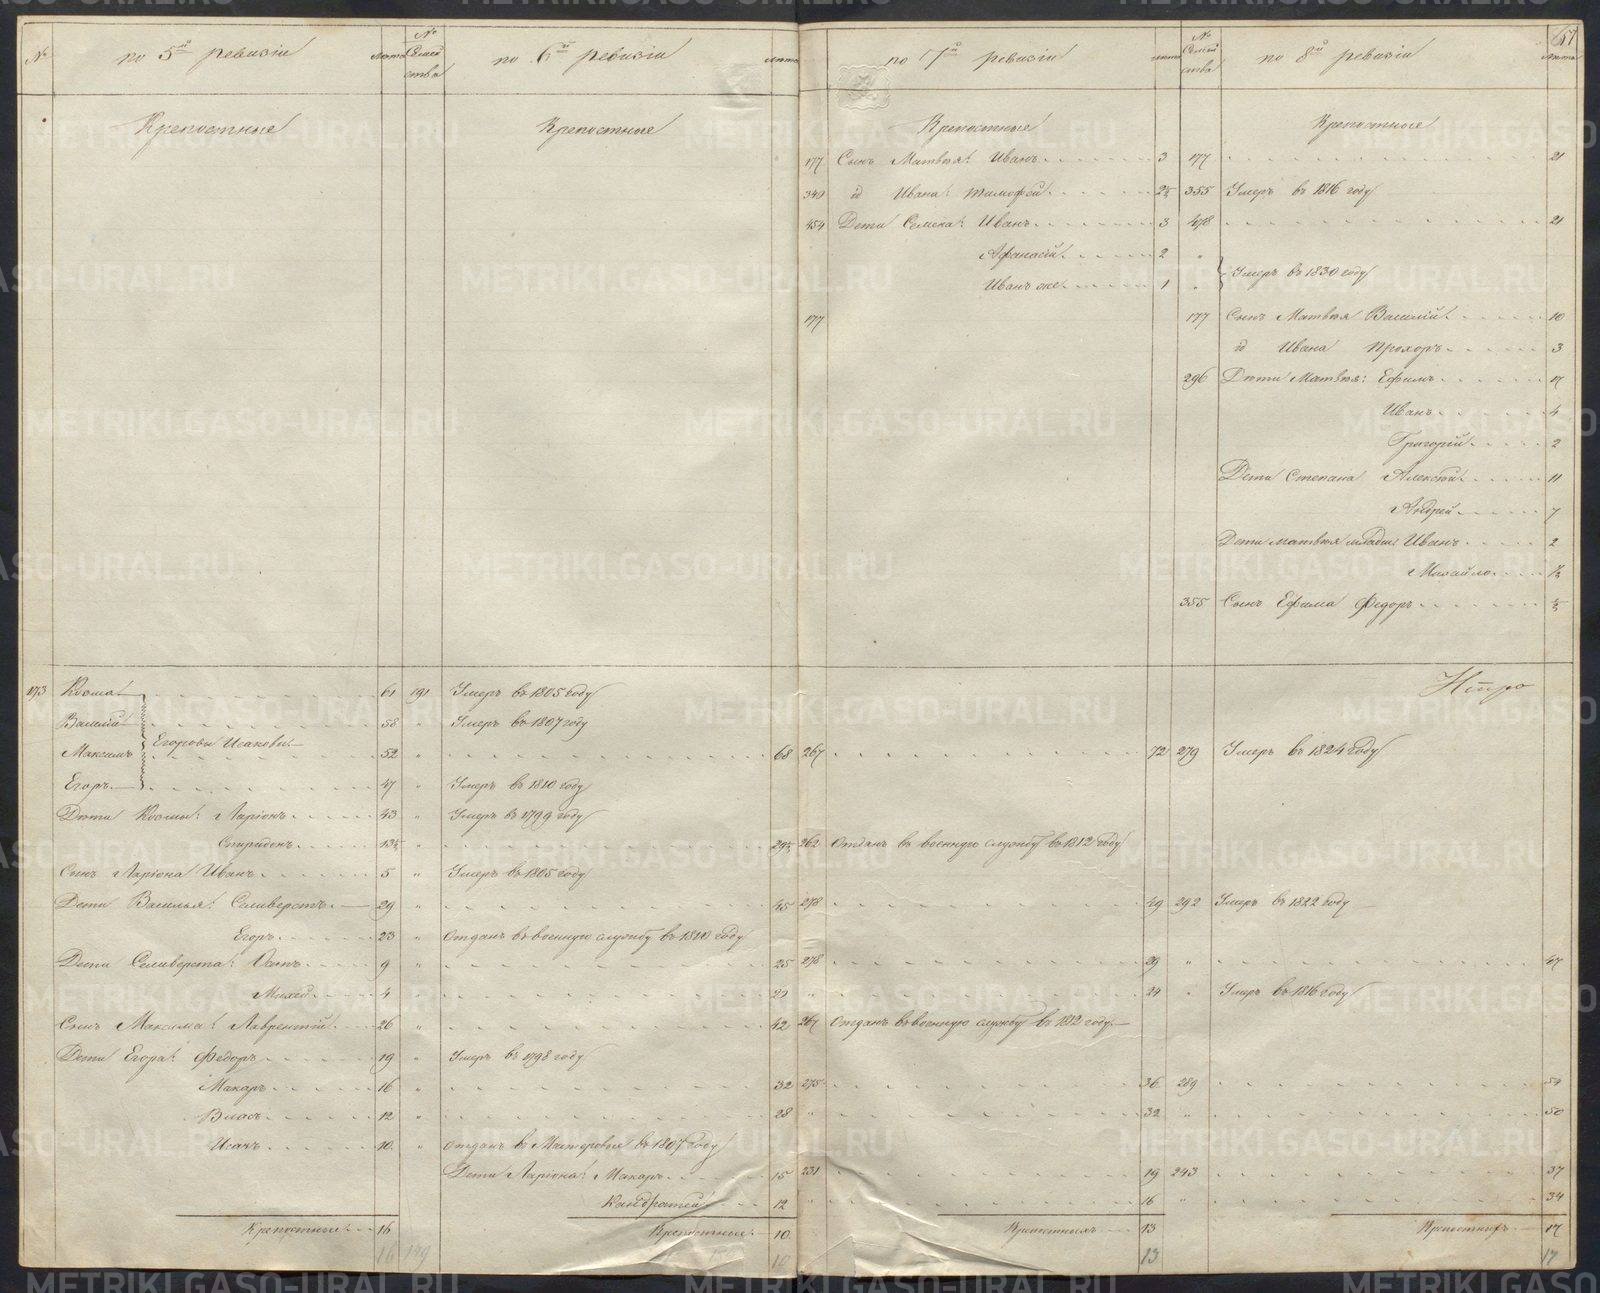 № по 5й ревизіи лета № Семей ства по 6й ревизіи лета по 7й ревизіи лета № Семей ства по 8й ревизіи лета 67
Крепостные Крепостные Крепостные Крепостные
177 Сынъ Матвея: Иванъ 3 177 21
349 id Ивана: Тимофей 355 Умеръ въ 1816 году
454 Дети Семена: Иванъ 3 478 21
Афанасій 2 „
Иванъ же 1 „ Умеръ въ 1830 году
177 177 Сынъ Матвея Василій 10
id Ивана Прохоръ 3
296 Дети Матвея: Ефимъ 17
Иванъ 4
Григорій 2
Дети Степана Алексей 11
Андрей 7
Дети Матвея младш: Иванъ 2
Михайло
355 Сынъ Ефима Федоръ
173 Козма 61 191 Умеръ въ 1805 году
Василій 58 „ Умеръ въ 1807 году
Егоровы Исаковы
Максимъ 52 „ 68 267 72 279 Умеръ въ 1824 году
Егоръ 47 „ Умеръ въ 1810 году
Дети Козмы: Ларіонъ 43 „ Умеръ въ 1799 году
Спиридонъ 262 Отданъ въ военную службу въ 1812 году
Сынъ Ларіона Иванъ 5 „ Умеръ въ 1805 году
Дети Василья: Селиверстъ 29 „ 45 278 49 292 Умеръ въ 1822 году
Егоръ 23 „ Отданъ въ военную службу въ 1810 году
Дети Селиверста: 9 „ 25 278 29 „ 47
Михей 4 „ 20 „ 24 „ Умеръ въ 1816 году
Сынъ Максима: Лаврентій 26 „ 42 267 Отданъ въ военную службу въ 1812 году
Дети Егора: Федоръ 19 „ Умеръ въ 1798 году
Макаръ 16 „ 32 275 36 289 54
Власъ 12 „ 28 „ 32 „ 50
Исакъ 10 „ Отданъ въ Мастеровые въ 1807 году
Дети Ларіона: Макаръ 15 231 19 243 37
Кандратей 12 „ 16 „ 34
Крепостные 16 Крепостные 10 Крепостныхъ 13 Крепостныхъ 17
16 13 17
METRIKI.GASO-URAL.RU